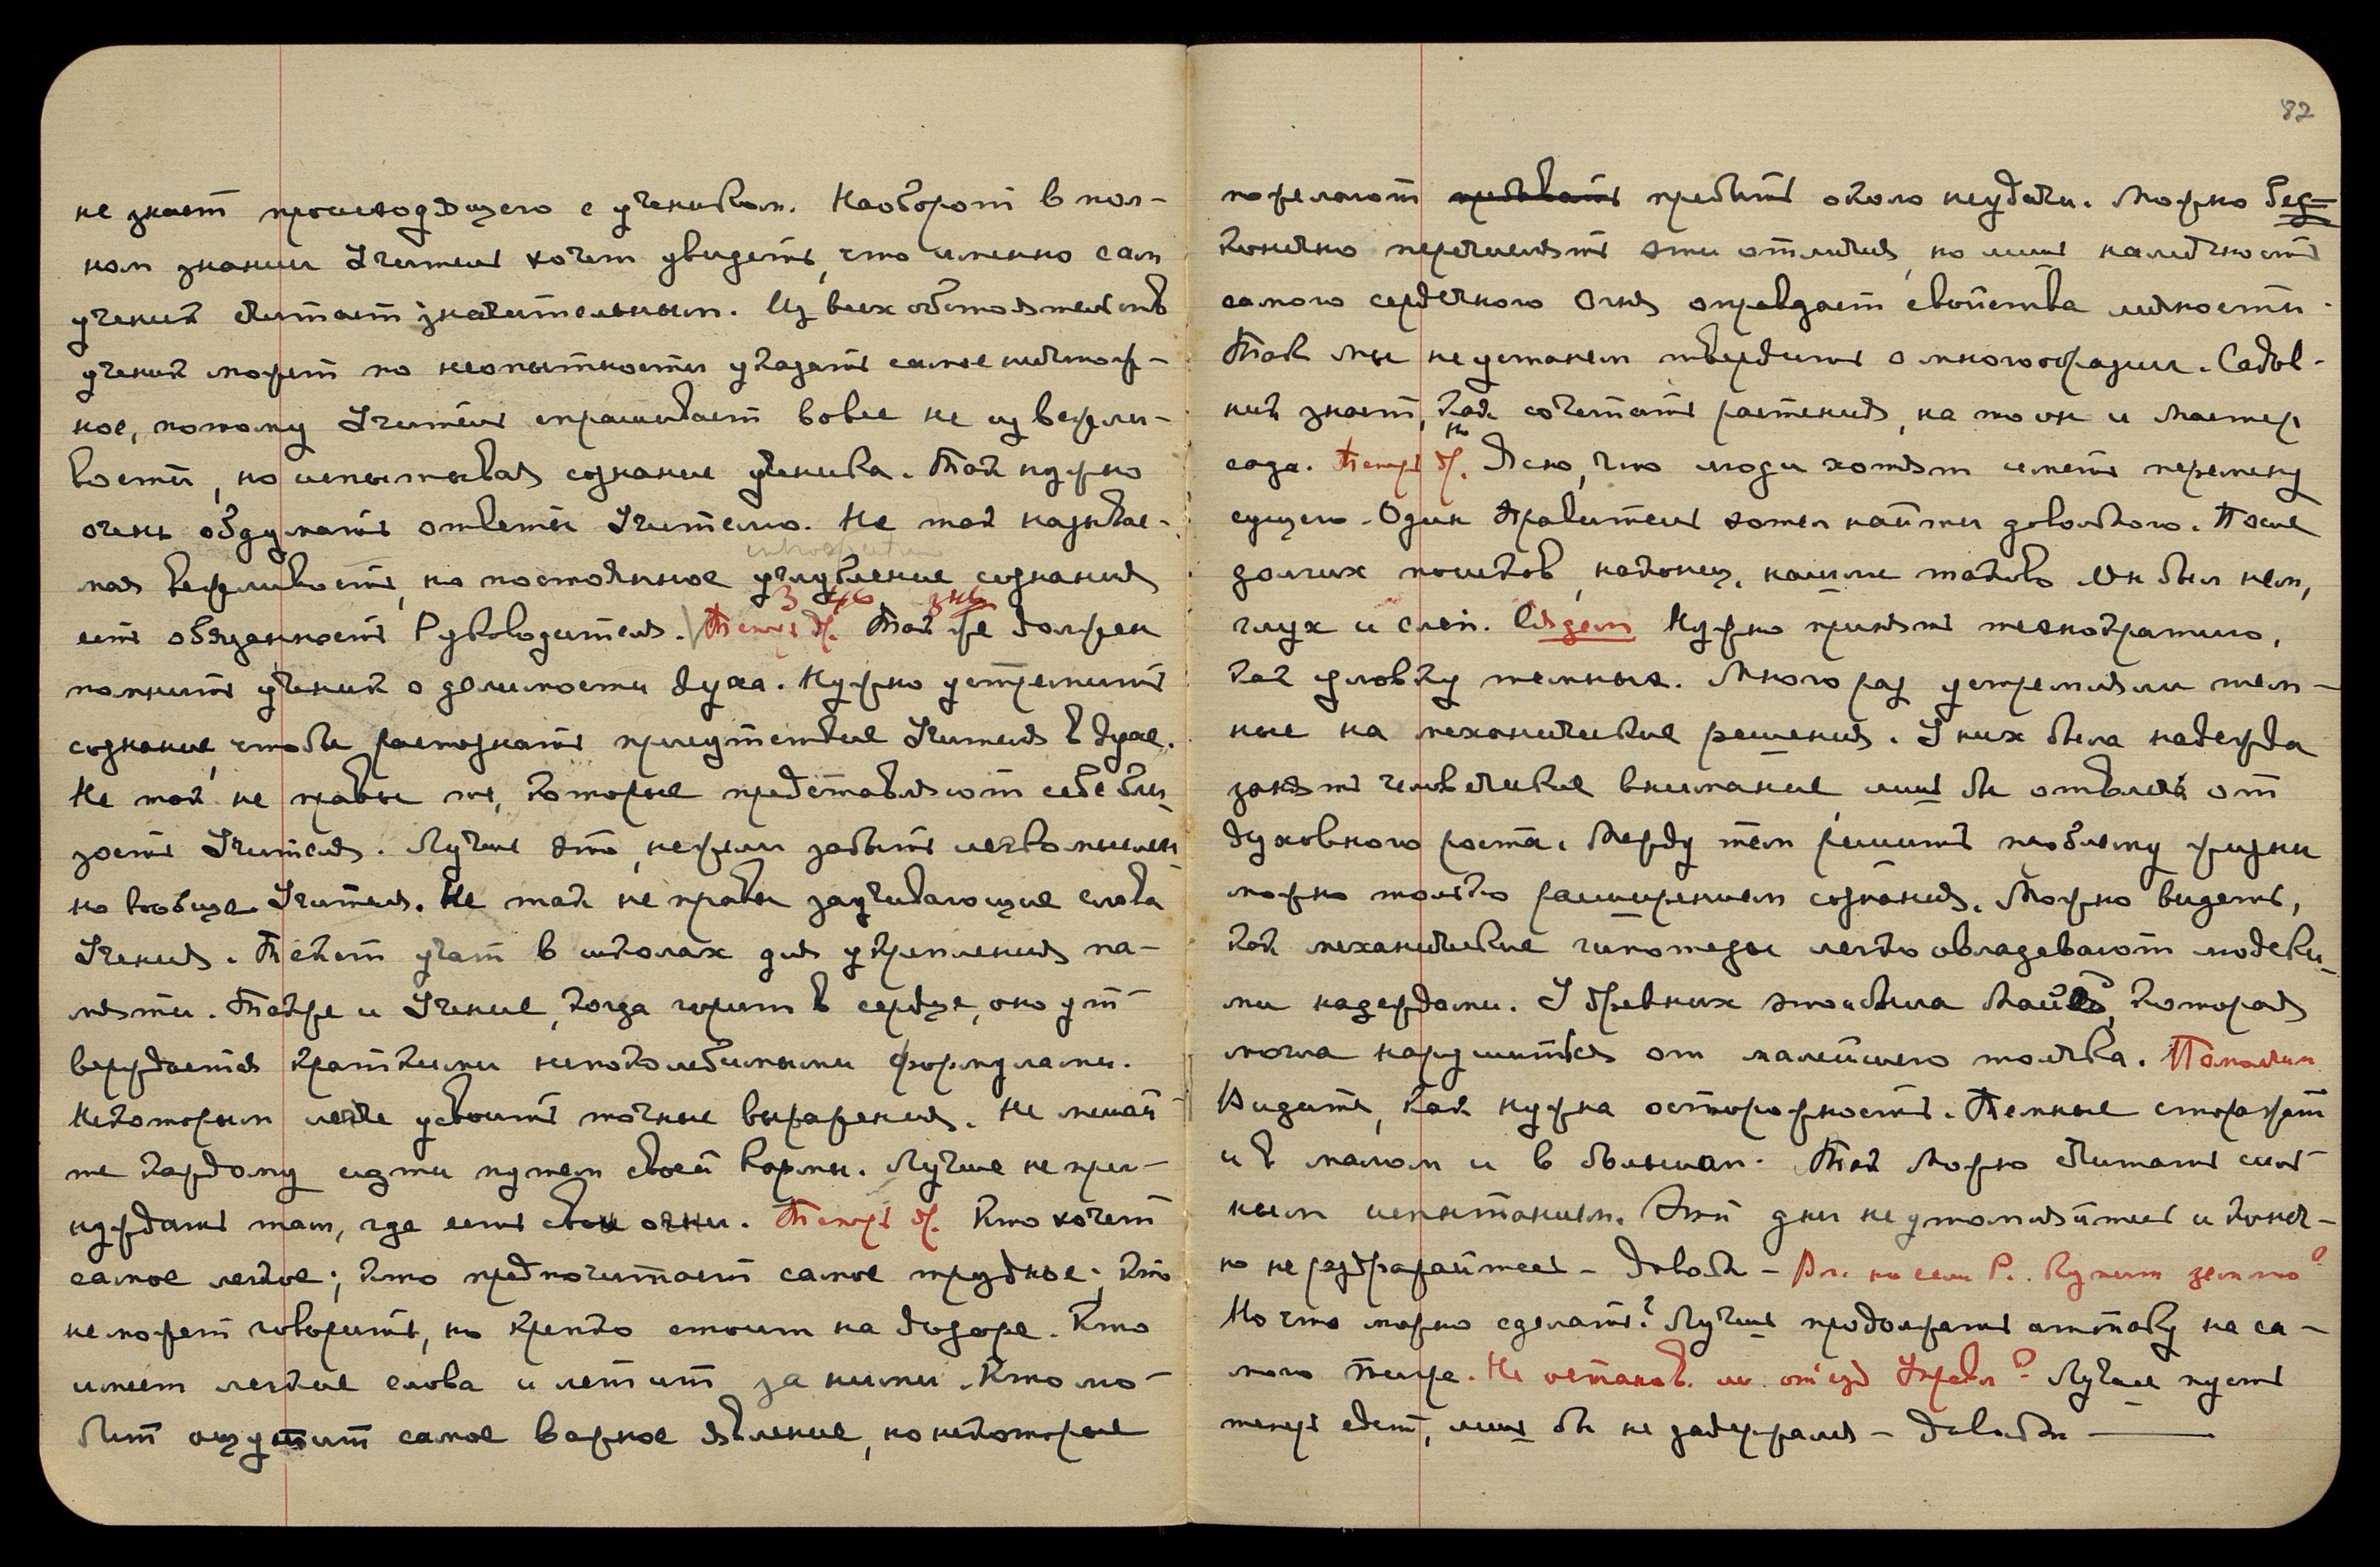 не знает происходящего с учеником. Наоборот в пол-
ном знании Учитель хочет увидеть, что именно сам
ученик считает значительным. Из всех обстоятельств
ученик может по неопытности указать самое ничтож-
ное, потому Учитель спрашивает вовсе не из вежли-
вости, но испытывая сознание ученика. Так нужно
очень обдумать ответы Учителю. Не так называе-
мая вежливость, но постоянное углубление сознания
есть обязанность Руководителя. Теперь др. Так же должен
помнить ученик о делимости духа. Нужно устремить
сознание, чтобы распознать присутствие Учителя в духе.
Не так не правы те, которые представляют себе бли-
зость Учителя. Лучше это, нежели забыть легкомыслен-
но вообще Учителя. Не так не правы заучивающие слова
Учения. Текст учат в школах для укрепления па-
мяти. Также и Учение, когда горит в сердце, оно ут-
верждается краткими непоколебимыми формулами.
Некоторым легче усвоить точные выражения. Не мешай-
те каждому идти путем своей кармы. Лучше не при-
нуждать там, где есть свои огни. Теперь др. Кто хочет
самое легкое; кто предпочитает самое трудное; кто
не может говорить, но крепко стоит на дозоре. Кто
имеет легкие слова и летит за ними. Кто мо-
жет ощутить самое важное явление, но некоторые
82
пожелают пребыть около неудачи. Можно без-
конечно перечислять эти отличия, но лишь наличность
самого сердечного Огня оправдает свойства личности.
Так мы не устанем твердить о многообразии. Садов-
ник знает, как сочетать растения, на то он и мастер
сада. Теперь др. Ясно, что люди хотят иметь перемену
сущего. Один Правитель хотел найти довольного. После
долгих поисков, наконец, нашли такого. Он был нем,
глух и слеп. Сядем Нужно принять технократию,
как уловку темных. Много раз устремляли тем-
ные на механические решения. У них была надежда
занять человеческое внимание, лишь бы отвлечь от
духовного роста. Между тем решить проблему жизни
можно только расширением сознания. Можно видеть,
как механические гипотезы легко овладевают людски-
ми надеждами. У древних это была Майя, которая
могла нарушиться от малейшего толчка. Помолчим
Видите, как нужна осторожность. Темные сторожат
и в малом и в большом. Так можно считать силь-
ным испытанием. Эти дни не утомляйтесь и конеч-
но не раздражайтесь – довольно – купит землю?
Но что можно сделать? Лучше продолжать аттаку на са-
мого Тигра. Не останов. ли отъезд? Лучше пусть
теперь едет, лишь бы не задержался – довольно